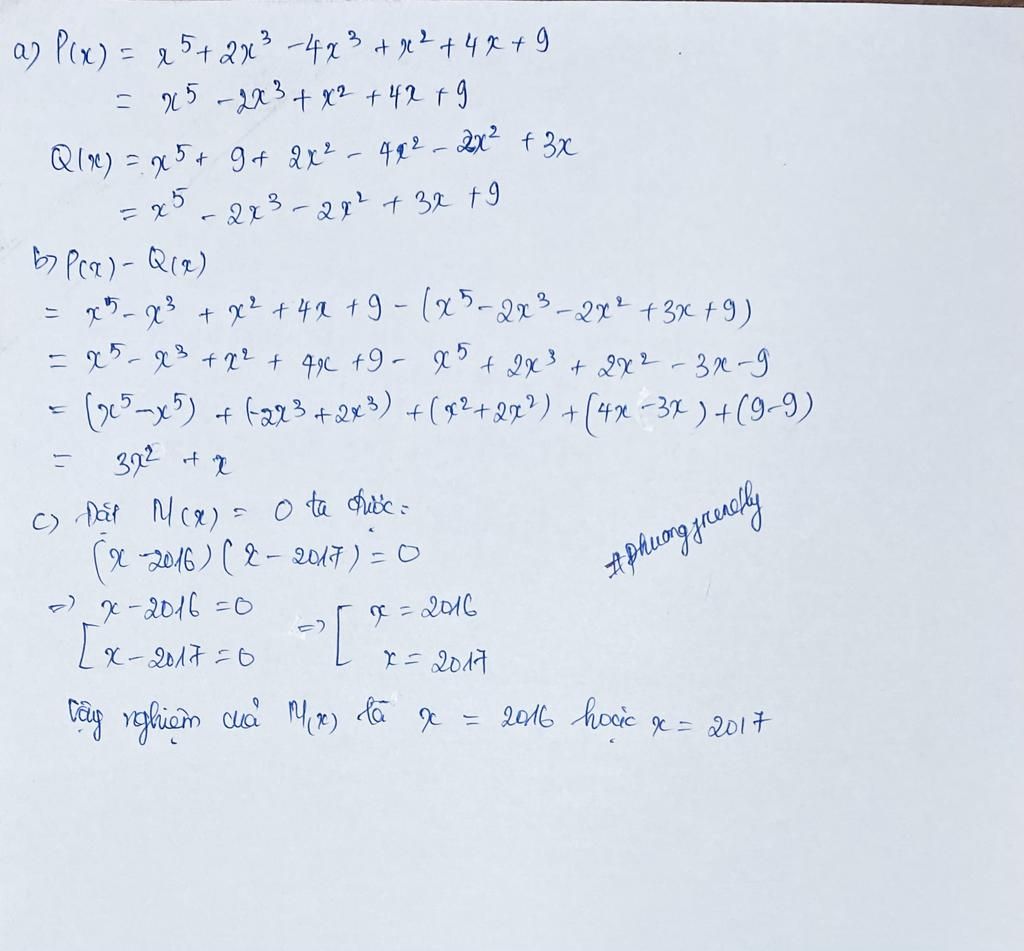 a) P(x) = x⁵ + 2x³ - 4x³ + x² + 4x + 9
= x⁵ - 2x³ + x² + 4x + 9
Q(x) = x⁵ + 9 + 2x² - 4x² - 2x² + 3x
= x⁵ - 2x³ - 2x² + 3x + 9
b) P(x) - Q(x)
= x⁵ - x³ + x² + 4x + 9 - (x⁵ - 2x³ - 2x² + 3x + 9)
= x⁵ - x³ + x² + 4x + 9 - x⁵ + 2x³ + 2x² - 3x - 9
= (x⁵ - x⁵) + (-2x³ + 2x³) + (x² + 2x²) + (4x - 3x) + (9 - 9)
= 3x² + x
c) Đặt M(x) = 0 ta được:
(x - 2016)(x - 2017) = 0
=> [ x - 2016 = 0 => [ x = 2016
x - 2017 = 0 x = 2017
Vậy nghiệm của M(x) là x = 2016 hoặc x = 2017
#phuongfriendly